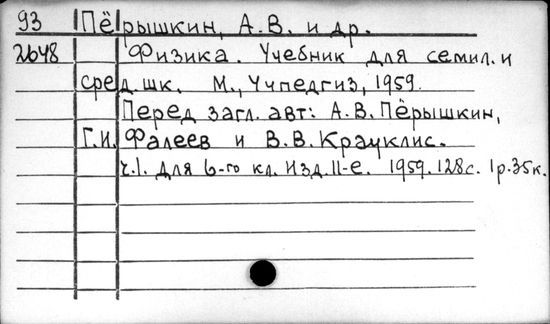 93 Пёрышкин, А.В. и др.
2648 Физика. Учебник для семил. и
сред. шк. М., Учпедгиз, 1959.
Перед загл. авт: А.В. Пёрышкин,
Г.И. Фалеев и В.В. Крауклис.
ч.1. Для 6-го кл. Изд. 11-е. 1959. 128с. 1р.35к.